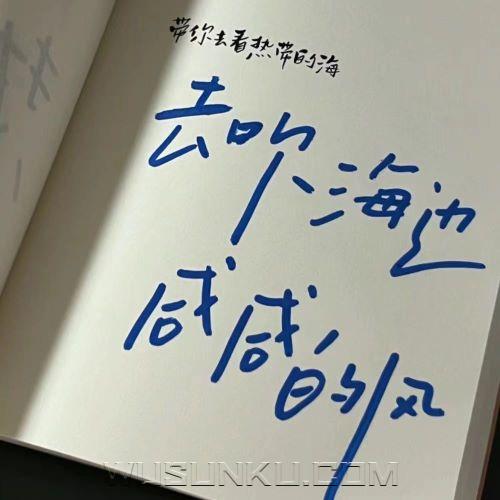 带你去看热带的海
去吹海边
咸咸的风
WUSUNKU.COM